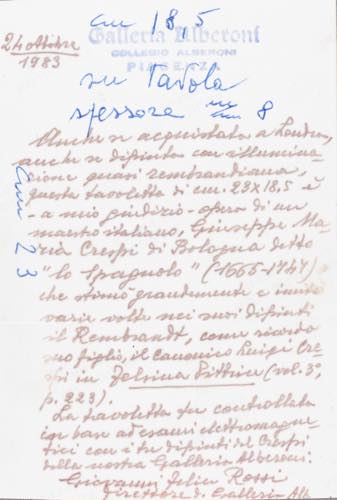 cm 18,5
Galleria Alberoni
COLLEGIO ALBERONI
PIACENZA
24 ottobre
1983
su Tavola
spessore mm 8
cm 23
Anche se acquistata a Londra,
anche se dipinta con illumina-
zione quasi rembrandiana,
questa tavoletta di cm. 23x18,5 è
- a mio giudizio - opera di un
maestro italiano, Giuseppe Ma-
ria Crespi di Bologna detto
"lo Spagnolo" (1665-1747)
che stimò grandemente e imitò
varie volte nei suoi dipinti
il Rembrandt, come ricorda
suo figlio, il Canonico Luigi Cre-
spi in Felsina Pittrice (vol. 3°,
p. 223).
La tavoletta fu controllata
in base ad esami elettromagne-
tici con i tre dipinti del Crespi
della nostra Galleria Alberoni.
Giovanni Felice Rossi
Direttore di Galleria Alb.